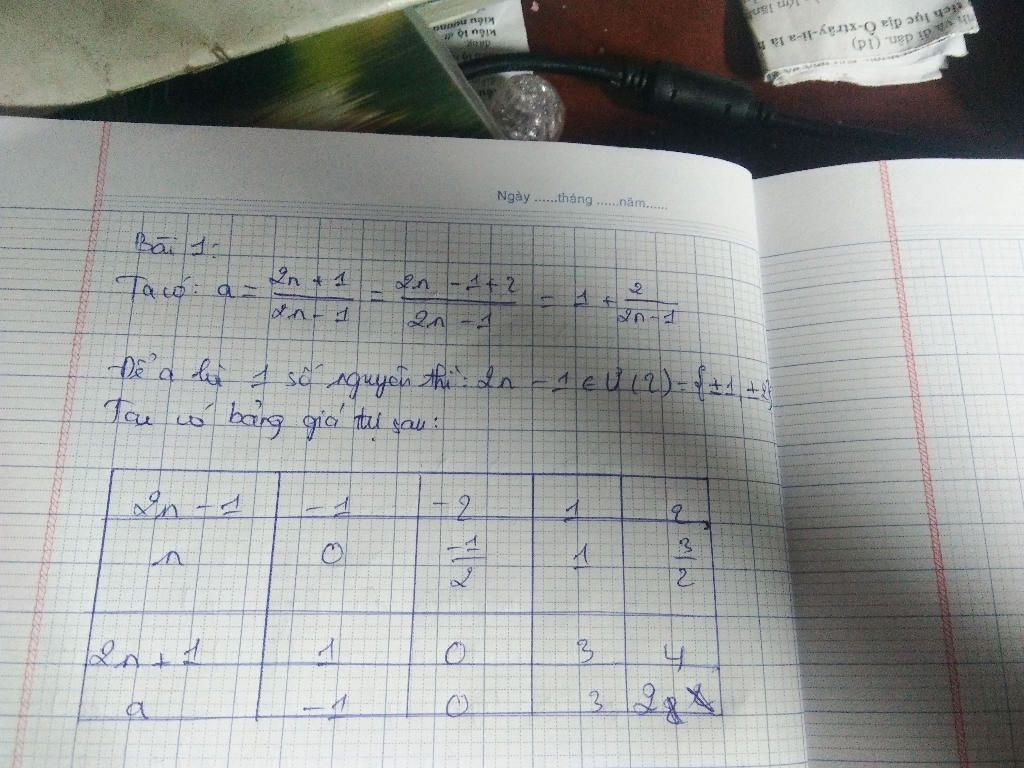 kiểu
Ngày ......tháng ......năm......
Bài 1:
Ta có: a = \frac{2n + 1}{2n - 1} = \frac{2n - 1 + 2}{2n - 1} = 1 + \frac{2}{2n - 1}
Để a là 1 số nguyên thì: 2n - 1 ∈ Ư(2) = {±1, ±2}
Ta có bảng giá trị sau:
2n - 1 -1 -2 1 2
n 0 \frac{-1}{2} 1 \frac{3}{2}
2n + 1 1 0 3 4
a -1 0 3 2